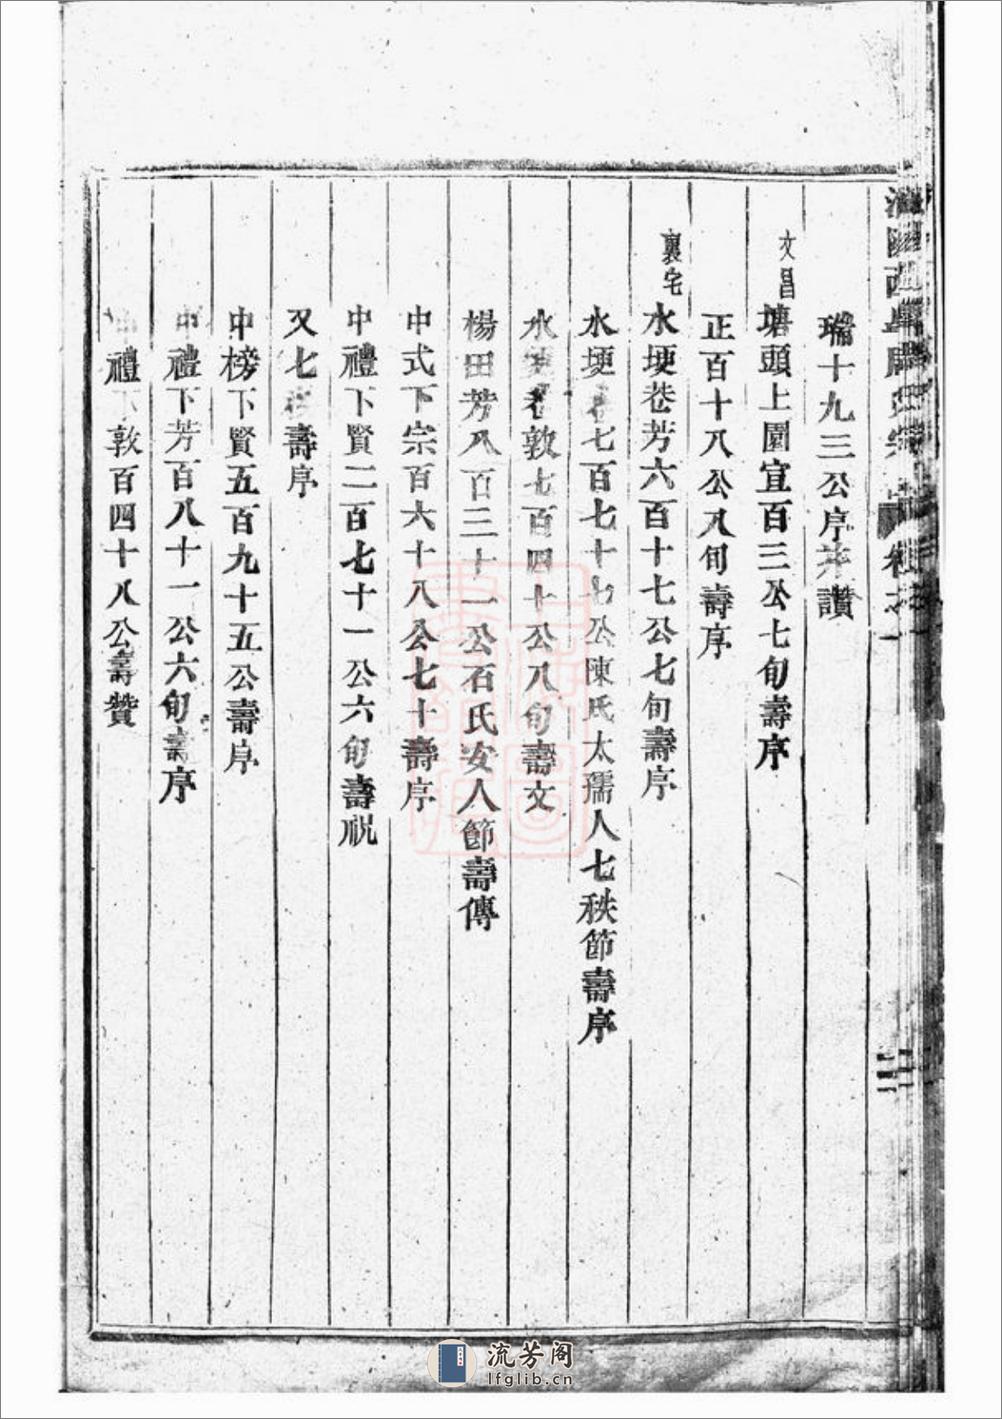 瑞十九三公序并讚
文昌
塘頭上園宣百三公七旬壽序
正百十八公八旬壽序
裏宅
水埂巷芳六百十七公七旬壽序
水埂巷七百七十七公陳氏太孺人七秩節壽序
水埂巷敦七百四十公八旬壽文
楊田芳八百三十一公石氏安人節壽傳
中式下宗百六十八公七十壽序
中禮下賢二百七十一公六旬壽祝
又七壽序
中榜下賢五百九十五公壽序
中禮下芳百八十一公六旬壽序
中禮下敦百四十八公壽贊
流芳阁
lfglib.cn